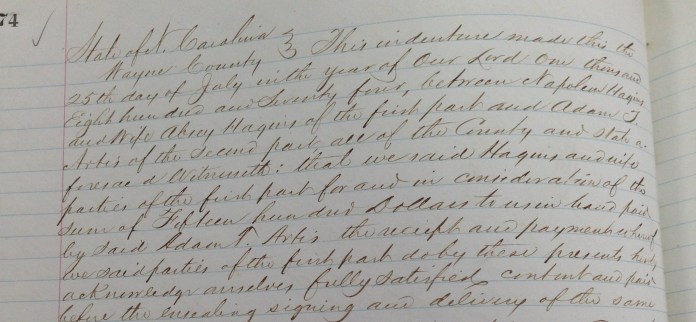 74
State of N. Carolina } This indenture made this the
Wayne County } 
25th day of July in the year of Our Lord One thousand
Eight hundred and Seventy four, between Napoleon Hagins
and Wife Absey Hagins of the first part and Adam T.
Artis of the Second part, all of the County and State a-
foresaid Witnesseth: that we said Hagins and wife
parties of the first part for and in consideration of the
sum of Fifteen hundred Dollars to us in hand paid
by said Adam T. Artis the receipt and payment whereof
we said parties of the first part do by these presents hereby
acknowledge ourselves fully satisfied content and paid
before the ensealing signing and delivery of the same